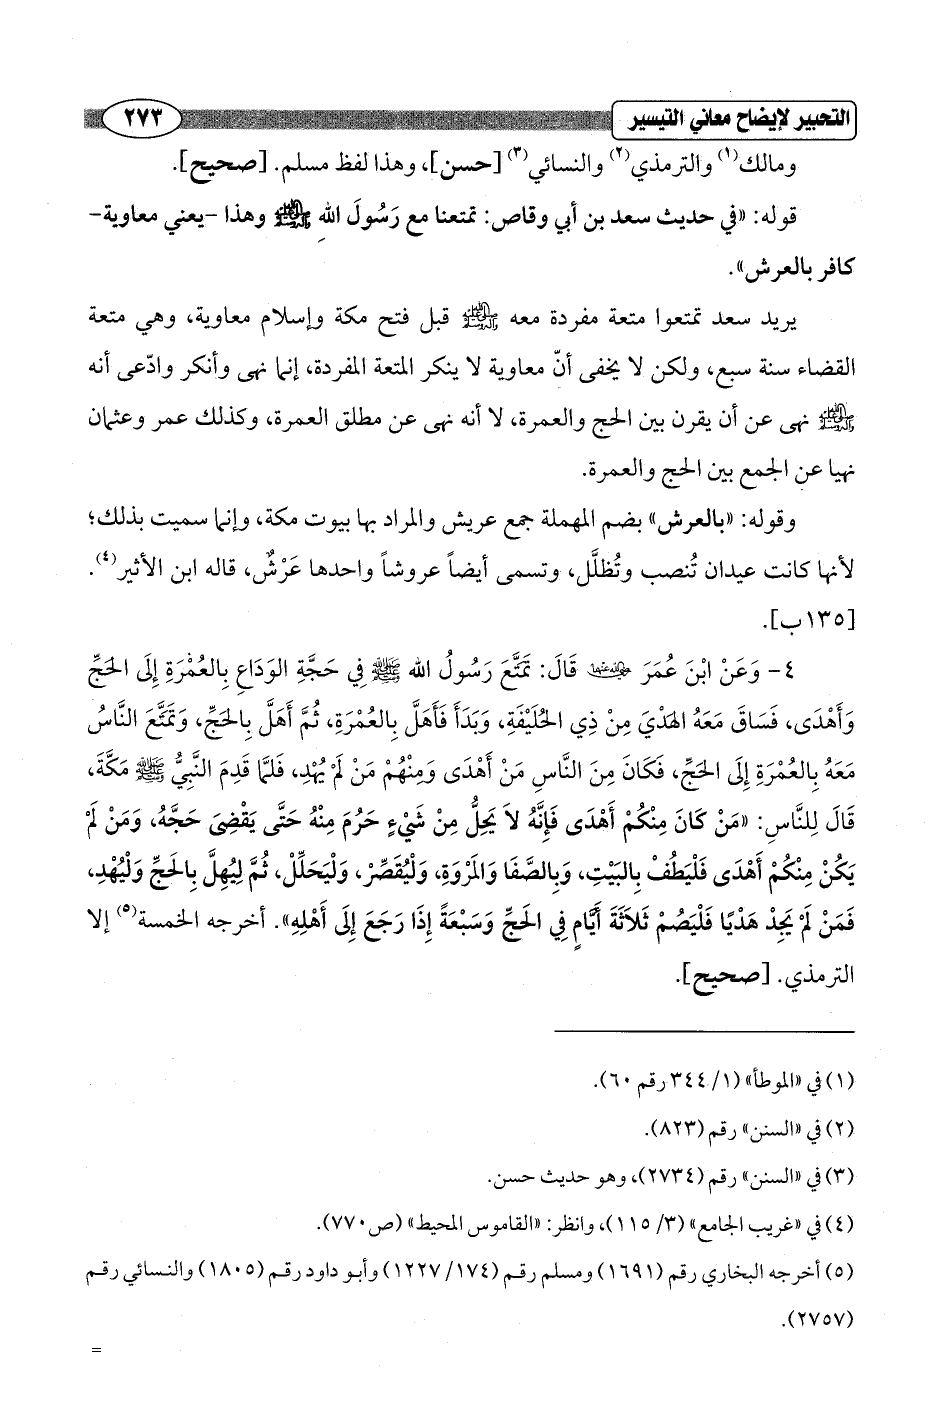 التحبير لإيضاح معاني التيسير ٢٧٣
ومالك(١) والترمذي(٢) والنسائي(٣) [حسن]، وهذا لفظ مسلم. [صحيح].
قوله: «في حديث سعد بن أبي وقاص: تمتعنا مع رَسُولَ الله ﷺ وهذا -يعني معاوية-
كافر بالعرش».
يريد سعد تمتعوا متعة مفردة معه ﷺ قبل فتح مكة وإسلام معاوية، وهي متعة
القضاء سنة سبع، ولكن لا يخفى أنّ معاوية لا ينكر المتعة المفردة، إنما نهى وأنكر وادّعى أنه
ﷺ نهى عن أن يقرن بين الحج والعمرة، لا أنه نهى عن مطلق العمرة، وكذلك عمر وعثمان
نهيا عن الجمع بين الحج والعمرة.
وقوله: «بالعرش» بضم المهملة جمع عريش والمراد بها بيوت مكة، وإنما سميت بذلك؛
لأنها كانت عيدان تُنصب وتُظلَّل، وتسمى أيضاً عروشاً واحدها عَرْشٌ، قاله ابن الأثير(٤).
[١٣٥ب].
٤- وَعَنْ ابْنَ عُمَرَ رضي الله عنهما قَالَ: تَمَتَّعَ رَسُولُ الله ﷺ فِي حَجَّةِ الوَدَاعِ بِالعُمْرَةِ إِلَى الحَجِّ
وَأَهْدَى، فَسَاقَ مَعَهُ الهَدْيَ مِنْ ذِي الحُلَيْفَةِ، وَبَدَأَ فَأَهَلَّ بِالعُمْرَةِ، ثُمَّ أَهَلَّ بِالحَجِّ، وَتَمَتَّعَ النَّاسُ
مَعَهُ بِالعُمْرَةِ إِلَى الحَجِّ، فَكَانَ مِنَ النَّاسِ مَنْ أَهْدَى وَمِنْهُمْ مَنْ لَمْ يُهْدِ، فَلَمَّا قَدِمَ النَّبِيُّ ﷺ مَكَّةَ،
قَالَ لِلنَّاسِ: «مَنْ كَانَ مِنْكُمْ أَهْدَى فَإِنَّهُ لاَ يَحِلُّ مِنْ شَيْءٍ حَرُمَ مِنْهُ حَتَّى يَقْضِيَ حَجَّهُ، وَمَنْ لَمْ
يَكُنْ مِنْكُمْ أَهْدَى فَلْيَطُفْ بِالبَيْتِ، وَبِالصَّفَا وَالمَرْوَةِ، وَلْيُقَصِّرْ، وَلْيَحَلِّلْ، ثُمَّ لِيُهِلَّ بِالحَجِّ وَلْيُهْدِ،
فَمَنْ لَمْ يَجِدْ هَدْيًا فَلْيَصُمْ ثَلاَثَةَ أَيَّامٍ فِي الحَجِّ وَسَبْعَةً إِذَا رَجَعَ إِلَى أَهْلِهِ». أخرجه الخمسة(٥) إلا
الترمذي. [صحيح].
(١) في «الموطأ» (١/ ٣٤٤ رقم ٦٠).
(٢) في «السنن» رقم (٨٢٣).
(٣) في «السنن» رقم (٢٧٣٤)، وهو حديث حسن.
(٤) في «غريب الجامع» (٣/ ١١٥)، وانظر: «القاموس المحيط» (ص٧٧٠).
(٥) أخرجه البخاري رقم (١٦٩١) ومسلم رقم (١٧٤/ ١٢٢٧) وأبو داود رقم (١٨٠٥) والنسائي رقم
(٢٧٥٧).
=